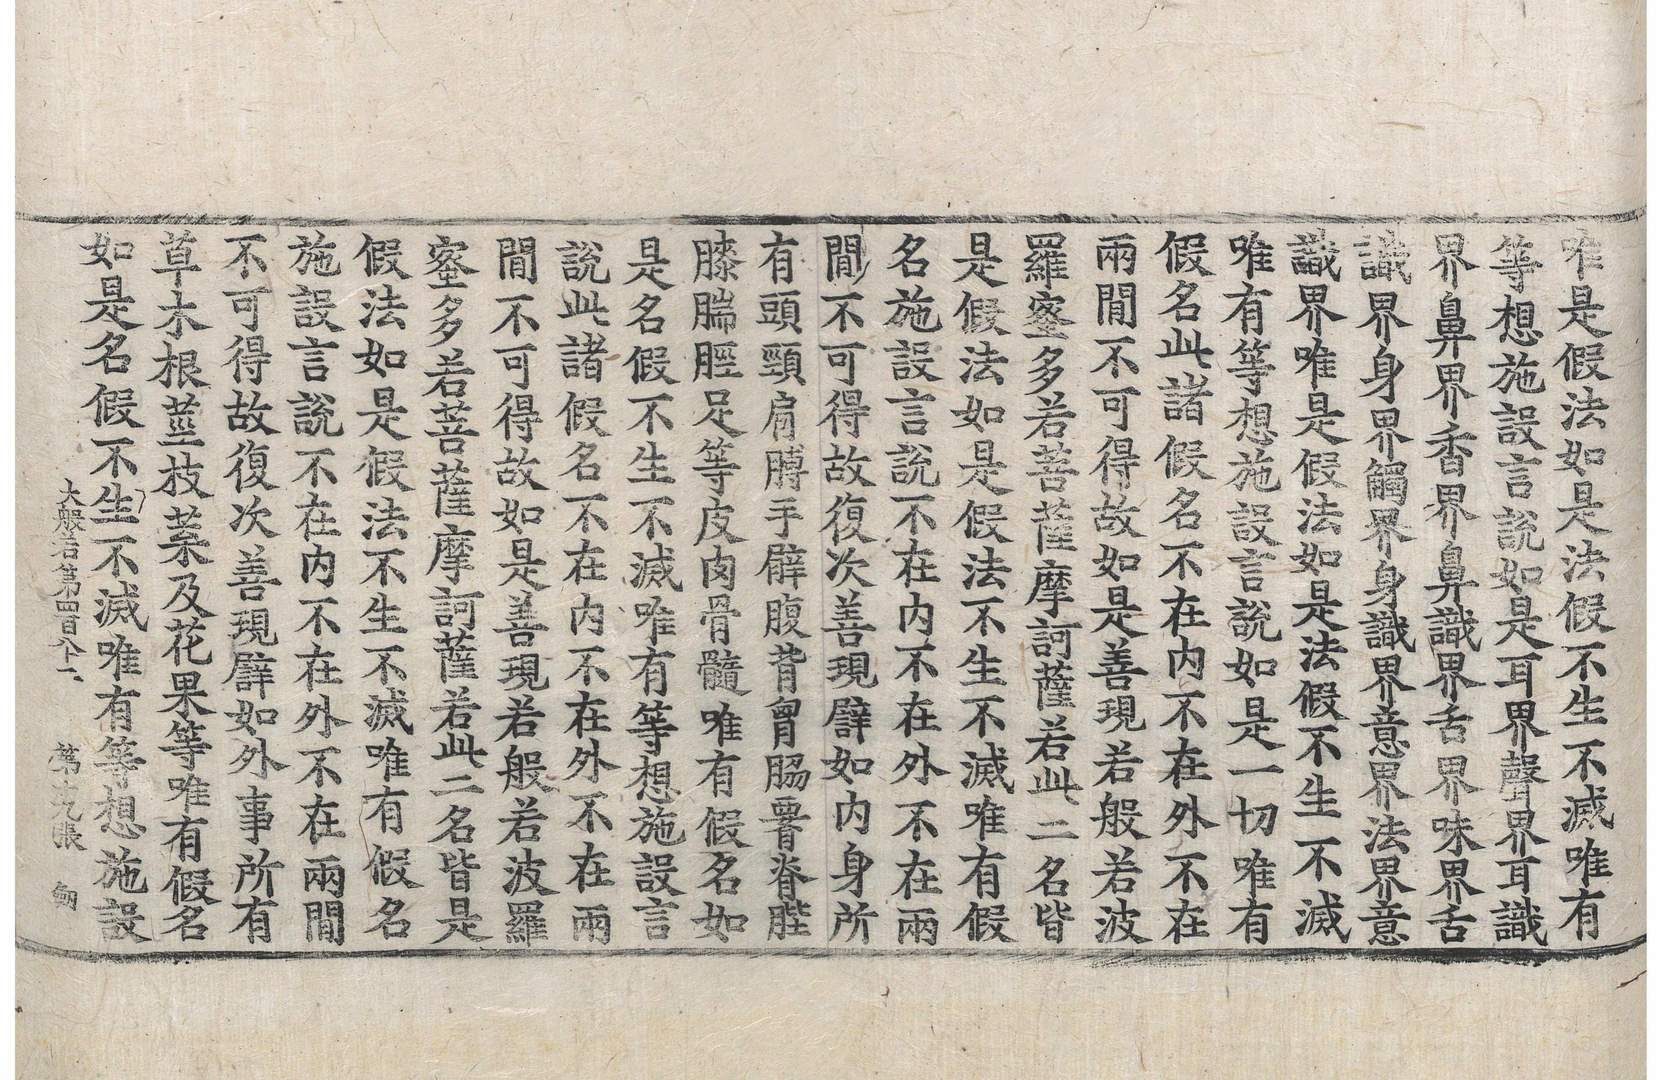 唯是假法如是法假不生不滅唯有
等想施設言說如是耳界聲界耳識
界鼻界香界鼻識界舌界味界舌
識界身界觸界身識界意界法界意
識界唯是假法如是法假不生不滅
唯有等想施設言說如是一切唯有
假名此諸假名不在内不在外不在
兩閒不可得故如是善現若般若波
羅蜜多若菩薩摩訶薩若此二名皆
是假法如是假法不生不滅唯有假
名施設言說不在内不在外不在兩
閒不可得故復次善現譬如内身所
有頭頸肩膊手臂腹背胷脇脊䏶
膝腨脛足等皮肉骨髓唯有假名如
是名假不生不滅唯有等想施設言
說此諸假名不在内不在外不在兩
閒不可得故如是善現若般若波羅
蜜多若菩薩摩訶薩若此二名皆是
假法如是假法不生不滅唯有假名
施設言說不在内不在外不在兩閒
不可得故復次善現譬如外事所有
草木根莖枝葉及花果等唯有假名
如是名假不生不滅唯有等想施設
大般若第四百八十二 第九張